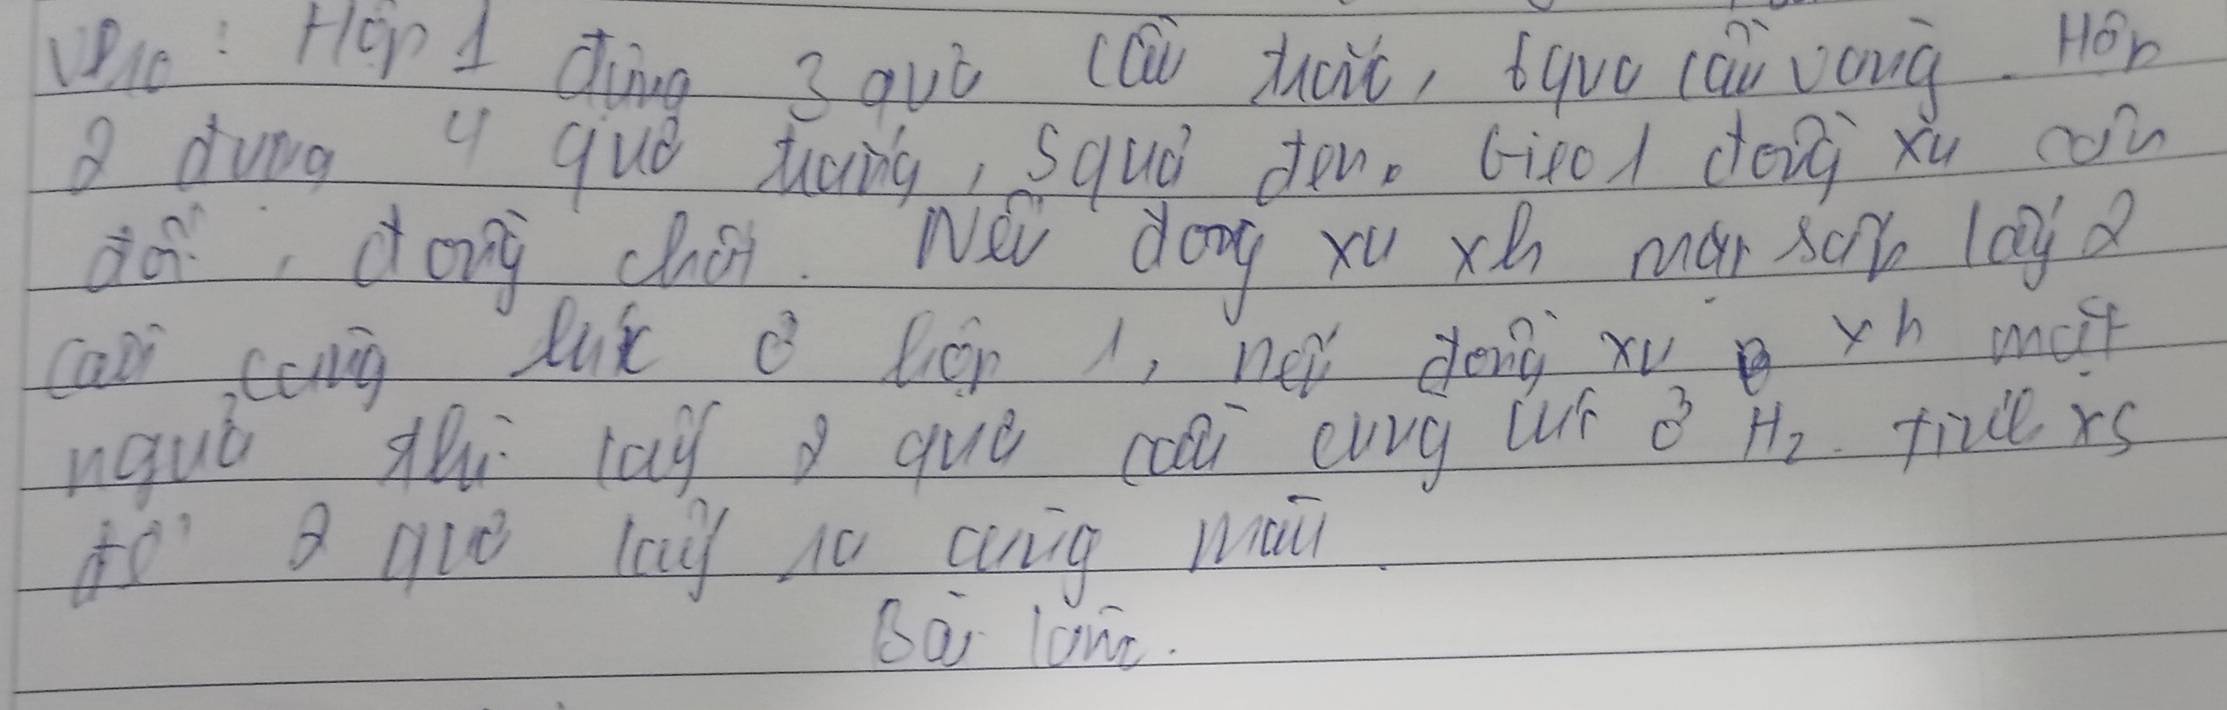 VD10: Hộp 1 đựng 3 quả cầu trắng, 6 quả cầu vàng. Hộp
2 đựng 4 quả trắng, 5 quả đen. Gieo 1 đồng xu cân
đối, đồng chất. Nếu đồng xu xh mặt sấp lấy 2
cầu cùng lúc ở hộp 1, nếu đồng xu xh mặt
ngửa thì lấy 2 quả cầu cùng lúc ở H2. tính xs
để 2 quả lấy ra cùng màu.
Bài làm.